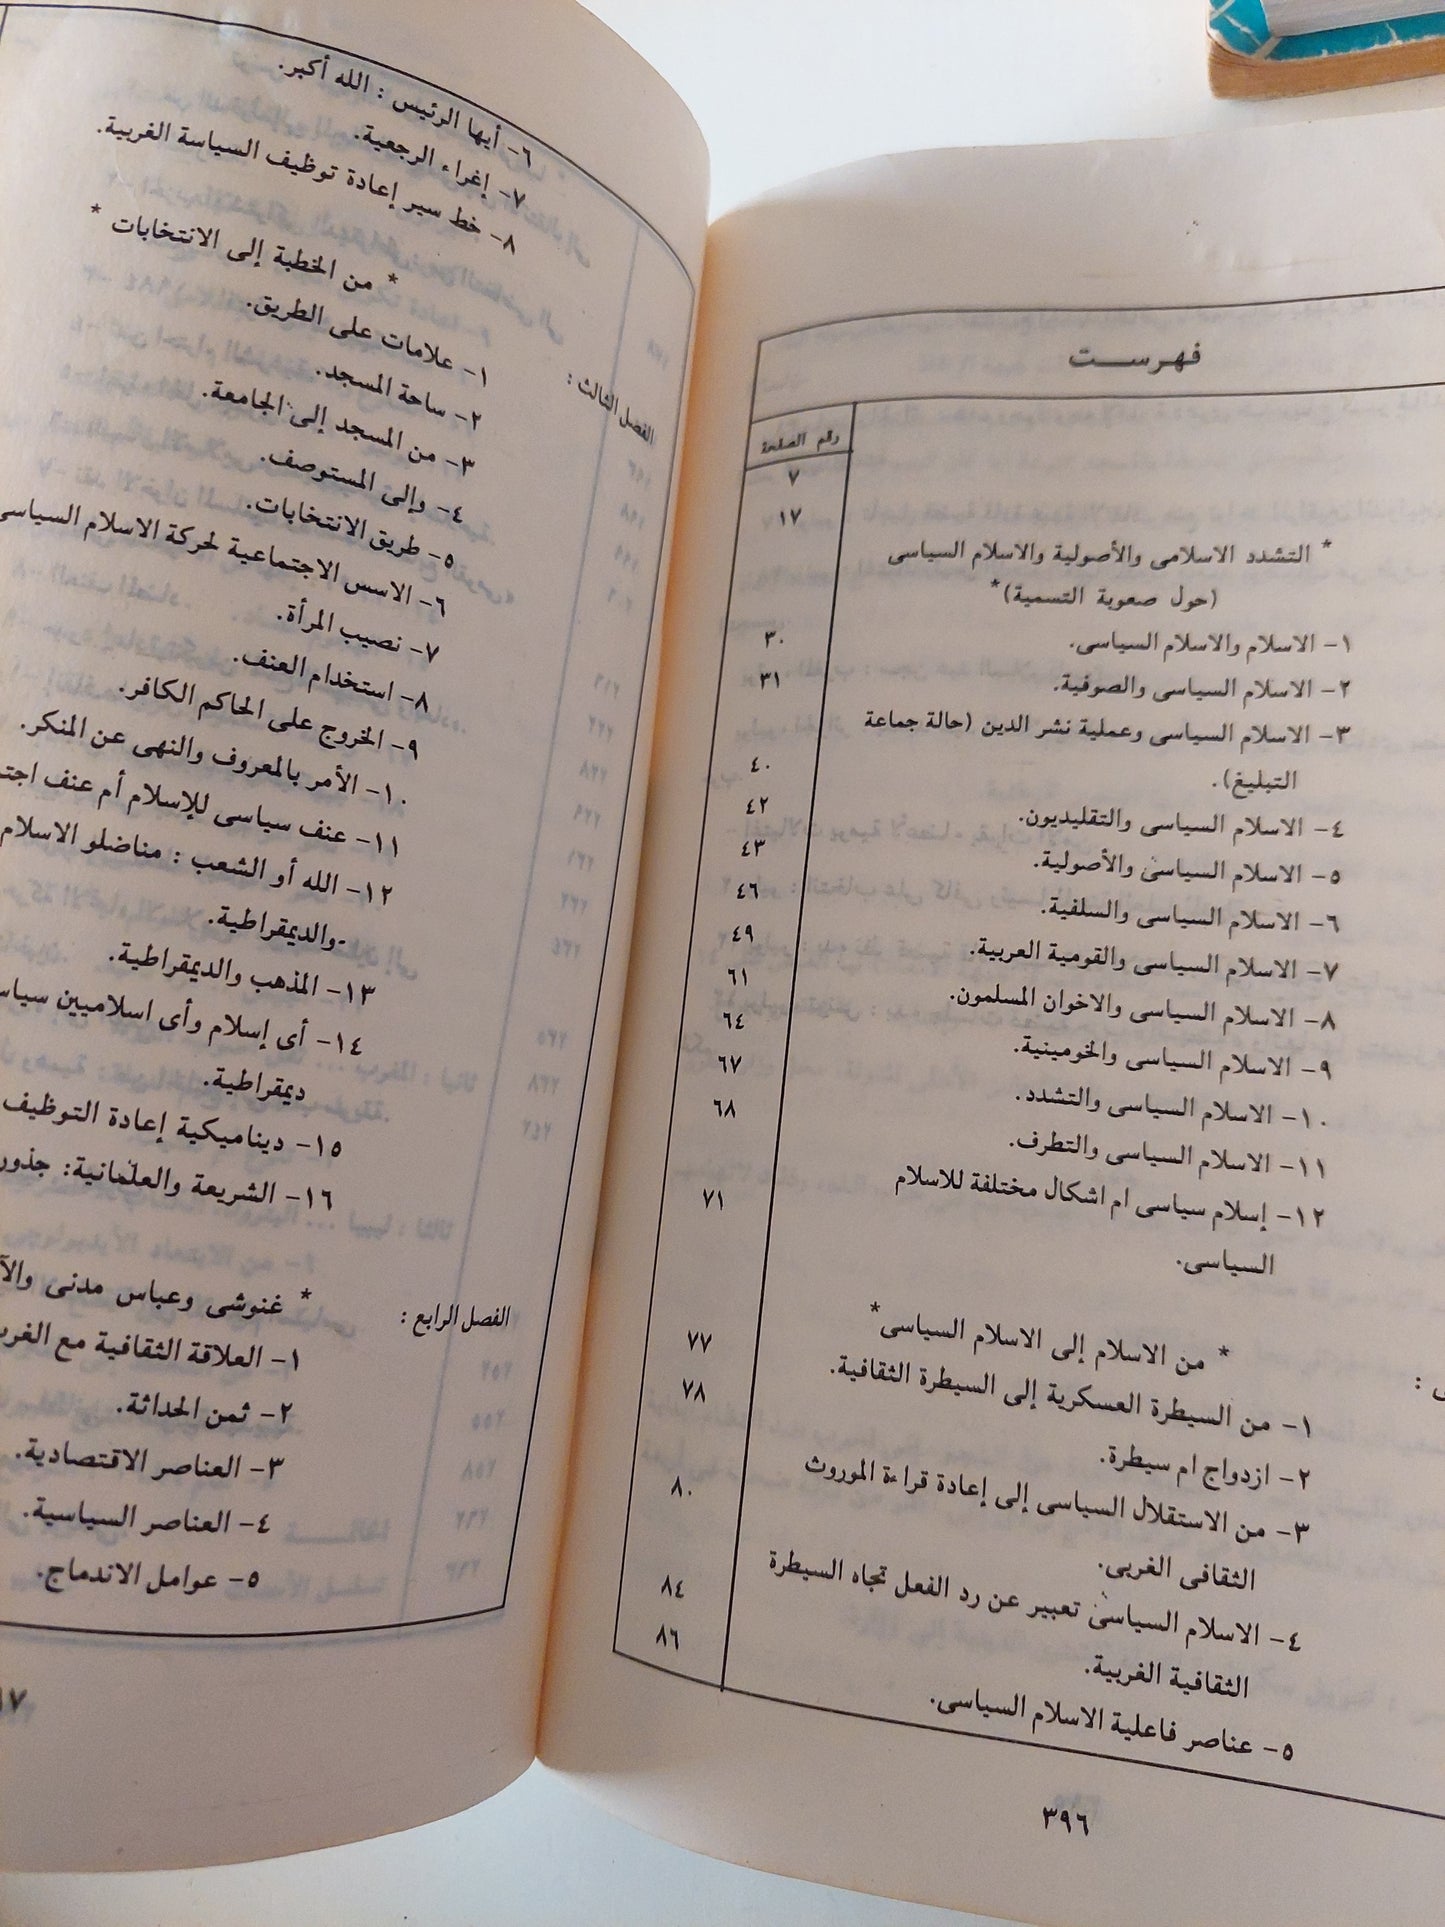 فهرست
رقم الصفحة
٧
١٧
* التشدد الاسلامى والأصولية والاسلام السياسى
(حول صعوبة التسمية)*
١- الاسلام والاسلام السياسى. ٣٠
٢- الاسلام السياسى والصوفية. ٣١
٣- الاسلام السياسى وعملية نشر الدين (حالة جماعة
التبليغ). ٤٠
٤- الاسلام السياسى والتقليديون. ٤٢
٥- الاسلام السياسى والأصولية. ٤٣
٦- الاسلام السياسى والسلفية. ٤٦
٧- الاسلام السياسى والقومية العربية. ٤٩
٨- الاسلام السياسى والاخوان المسلمون. ٦١
٩- الاسلام السياسى والخومينية. ٦٤
١٠- الاسلام السياسى والتشدد. ٦٧
١١- الاسلام السياسى والتطرف. ٦٨
١٢- إسلام سياسى ام اشكال مختلفة للاسلام
السياسى. ٧١
* من الاسلام إلى الاسلام السياسى*
١- من السيطرة العسكرية إلى السيطرة الثقافية. ٧٧
٢- ازدواج ام سيطرة. ٧٨
٣- من الاستقلال السياسى إلى إعادة قراءة الموروث
الثقافى الغربى. ٨٠
٤- الاسلام السياسى تعبير عن رد الفعل تجاه السيطرة
الثقافية الغربية. ٨٤
٥- عناصر فاعلية الاسلام السياسى. ٨٦
٣٩٦
٦- أيها الرئيس : الله أكبر.
٧- إغراء الرجعية.
٨- خط سير إعادة توظيف السياسة الغربية.
الفصل الثالث : * من الخطبة إلى الانتخابات *
١- علامات على الطريق.
٢- ساحة المسجد.
٣- من المسجد إلى الجامعة.
٤- وإلى المستوصف.
٥- طريق الانتخابات.
٦- الاسس الاجتماعية لحركة الاسلام السياسى
٧- نصيب المرأة.
٨- استخدام العنف.
٩- الخروج على الحاكم الكافر.
١٠- الأمر بالمعروف والنهى عن المنكر.
١١- عنف سياسى للإسلام أم عنف
١٢- الله أو الشعب : مناضلو الاسلام
والديمقراطية.
١٣- المذهب والديمقراطية.
١٤- أى إسلام وأى اسلاميين
ديمقراطية.
١٥- ديناميكية إعادة التوظيف
١٦- الشريعة والعلمانية: جذور
الفصل الرابع : * غنوشى وعباس مدنى
١- العلاقة الثقافية مع
٢- ثمن الحداثة.
٣- العناصر الاقتصادية.
٤- العناصر السياسية.
٥- عوامل الاندماج.